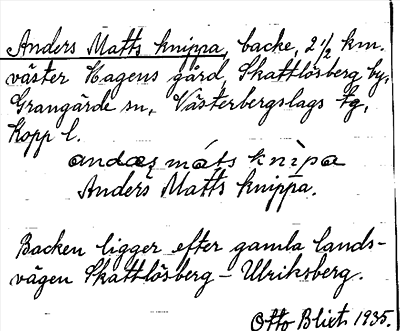 Anders Matts knippa, backe, 2 1/2 km.
väster Hagens gård, Skattlösberg by,
Grangärde sn, Västerbergslags tg,
Kopp l.
andaş máts knìpa
Anders Matts knippa.
Backen ligger efter gamla lands-
vägen Skattlösberg – Ulriksberg.
Otto Blixt 1935.